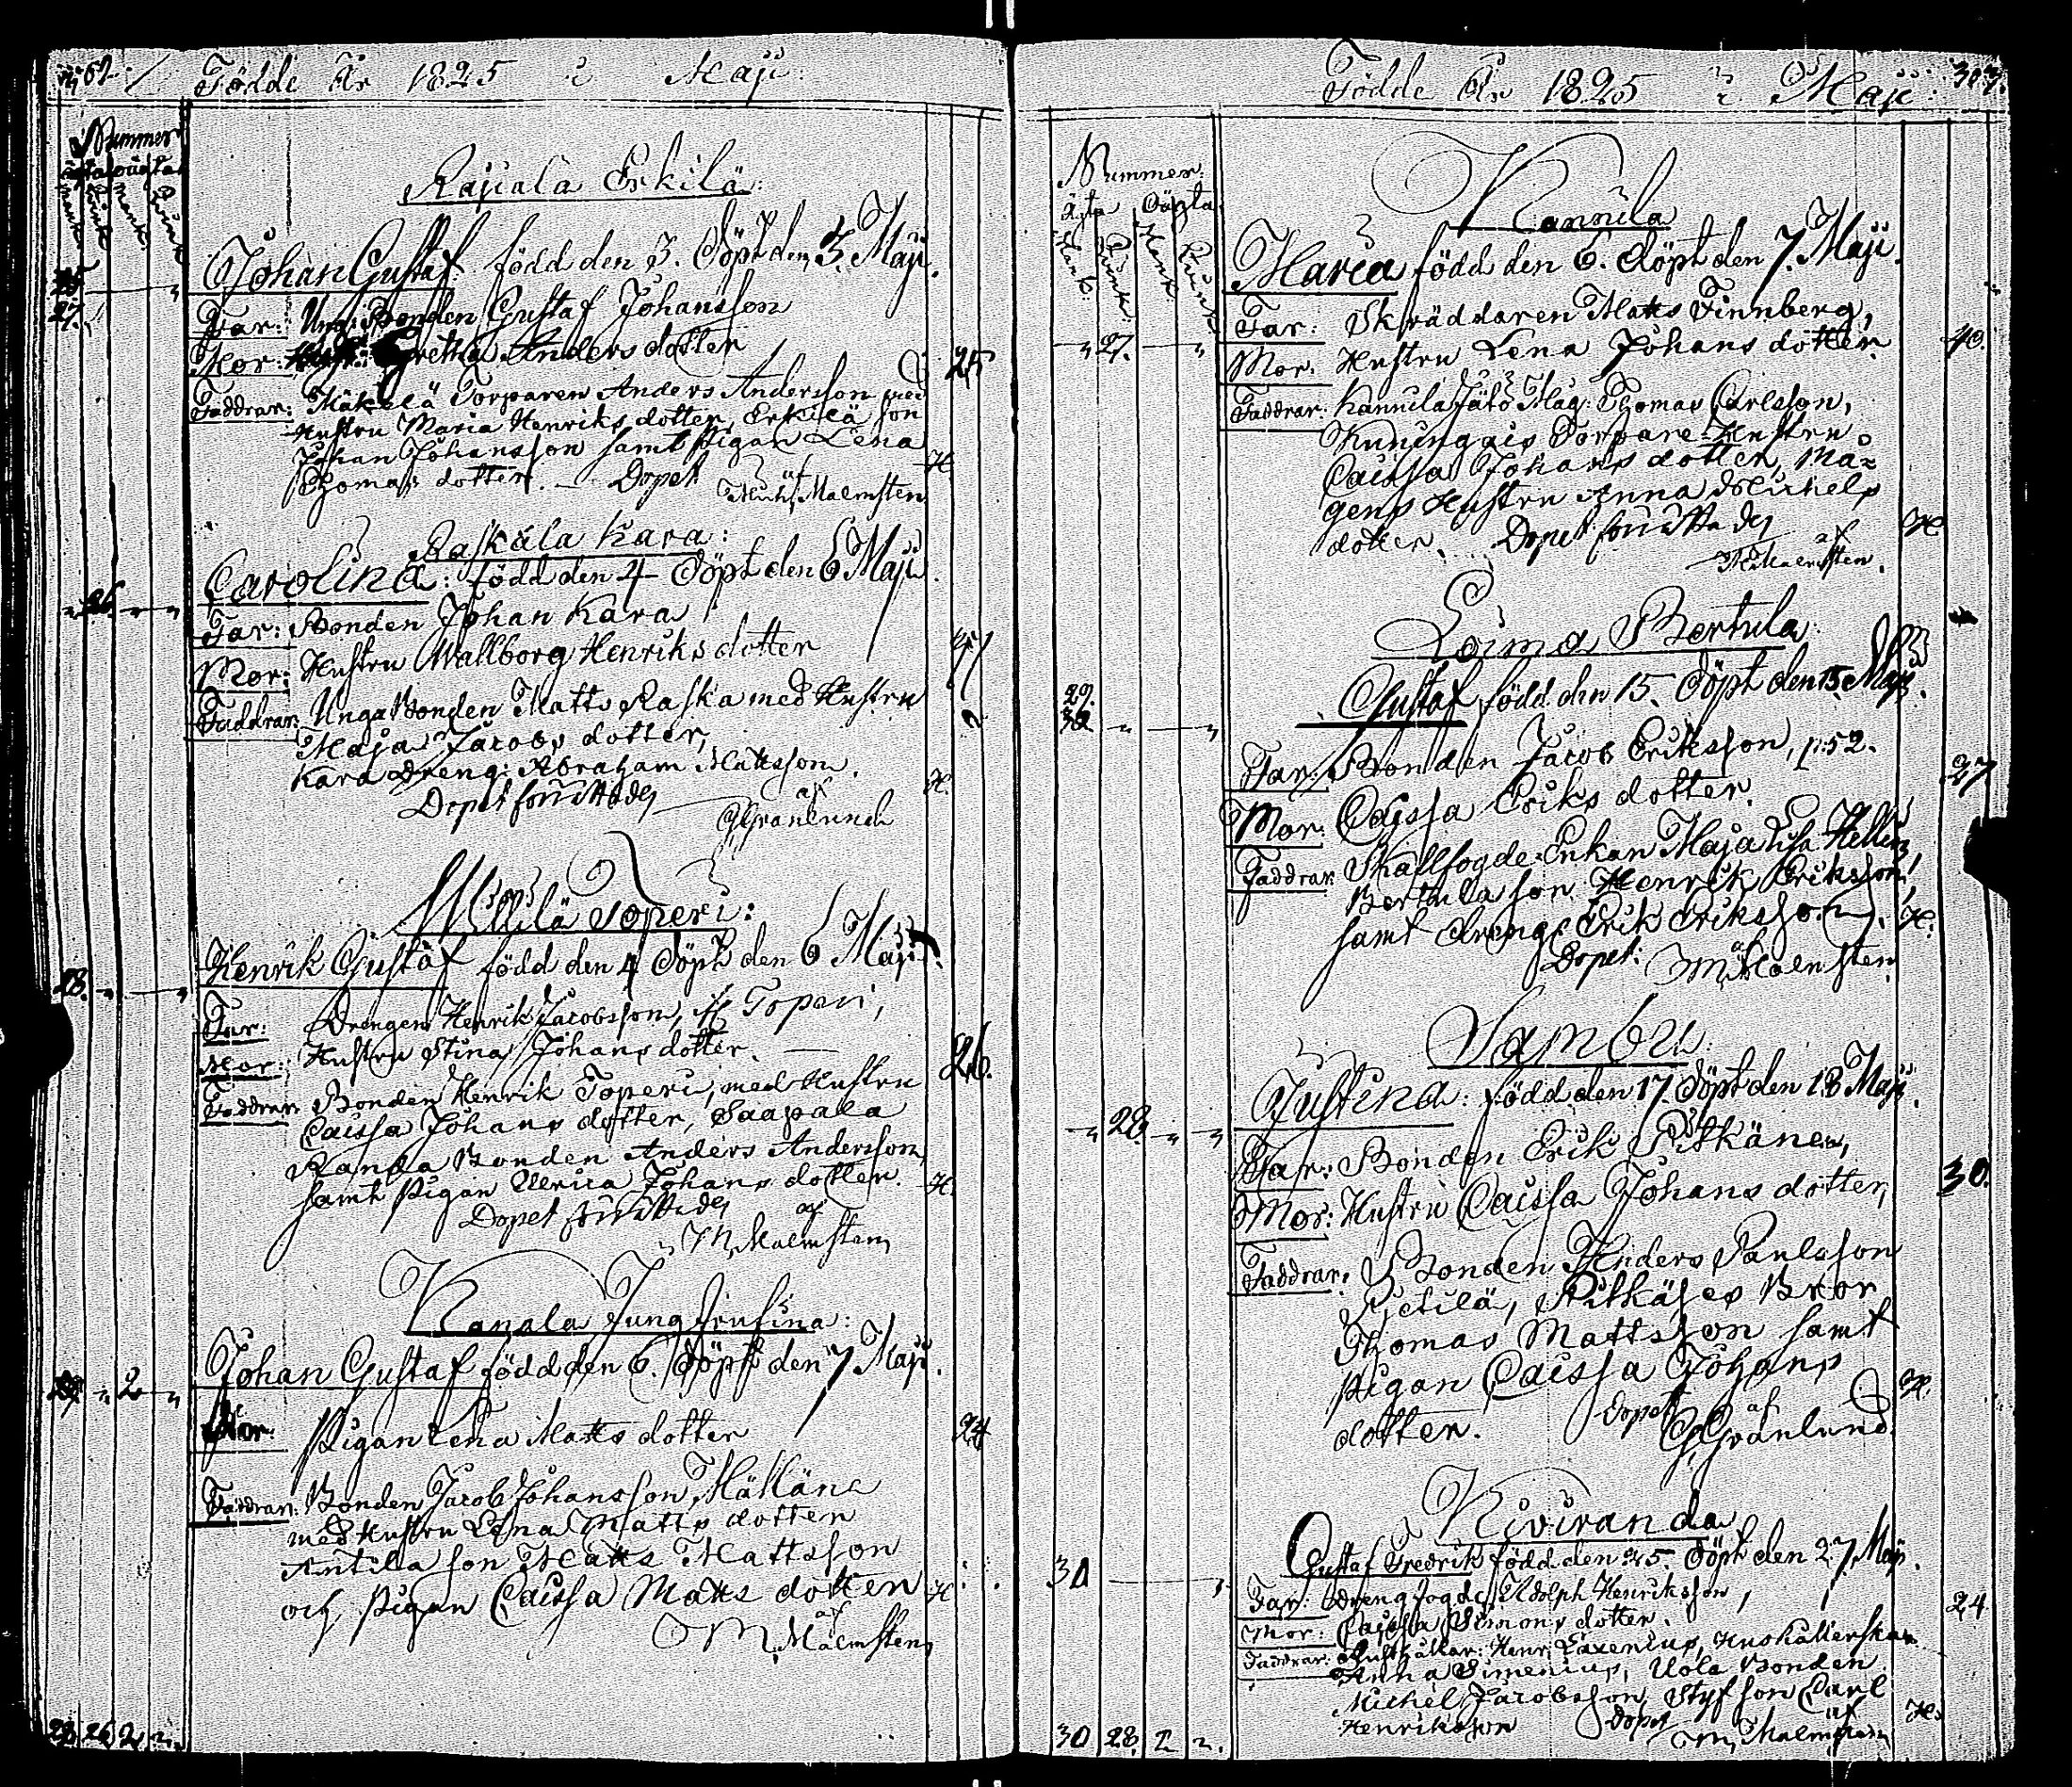 Födde År 1825 i Maji:
Nummer
Rajala Erkilä:
Johan Gustaf född den 3. Döpt den 3. Maji.
27.
Far: Ung: Bonden Gustaf Johansson
Mor: Gretha Anders dotter
25
Faddrar: Mäkelä Torparen Anders Andersson med
Hustru Maria Henriks dotter, Erkilä son
Johan Johansson samt Pigan Lena
Thomas dotter. Dopet
H
af Mich: Malmsten
Raskala Kara:
Carolina: född den 4 Döpt den 6 Maji.
26
Far: Bonden Johan Kara
Mor: Hustru Wallborg Henriks dotter
Faddrar: Unga Bonden Matts Raska med Hustru
Maja Jacobs dotter,
Kara Dreng: Abraham Mattsson.
H.
Dopet förrättades af
G Granlund
Willilä Toperi:
Henrik Gustaf född den 4 Döpt den 6 Maji.
28.
Far: Drengen Henrik Jacobsson, Toperi,
Mor: Hustru Stina Johans dotter.
26.
Faddrar: Bonden Henrik Toperi, med Hustru
Caissa Johans dotter, Saapala
Randa Bonden Anders Andersson,
samt Pigan Ulrica Johans dotter.
H.
Dopet förrättades af
M. Malmsten
Kanala Jungfrusina:
Johan Gustaf född den 6. Döpt den 7 Maji.
2
Mor: Pigan Lena Matts dotter
24
Faddrar: Bonden Jacob Johansson,
med Hustru Lena Matts dotter
Antila son Matts Mattsson
och Pigan Caissa Matts dotter
H
af
M. Malmsten
28 26 2
Födde År 1825 i Maji: 303.
Nummer:
Ägta Oägta
Mank. Qvink. Mank. Qvink.
Kannila
Maria född den 6. Döpt den 7. Maji.
Far: Skräddaren Matts Finnberg,
27.
Mor: Hustru Lena Johans dotter.
40.
Faddrar: Kannila Mag: Thomas Carlsson,
Kuningais Torpare-Hustru
Caissa Johans dotter, Ma=
gens Hustru Anna Michels
dotter. Dopet förrättades
H
af
M Malmsten.
Loima Bertula:
Gustaf född den 15. Döpt den 15 Maji.
29.
30
Far: Bonden Jacob Eriksson, p: 52.
27
Mor: Caissa Eriks dotter.
Faddrar: Skallfogde-Enkan Maja Lisa
Bertula son Henrik Eriksson,
samt drenge Erik Eriksson.
H.
Dopet: af
M. Malmsten
Sambu
Justina: född den 17 Döpt den 18 Maji.
28
Far: Bonden Erik Pitkänen,
30.
Mor: Hustru Caissa Johans dotter,
Faddrar: Bonden Anders Paulsson
Pitkäses Bror
Thomas Mattsson samt
Pigan Caissa Johans
dotter. Dopet af
G Granlund.
Kiviranda
Gustaf Fredrik född den 25. Döpt den 27. Maji.
30
Far: Drengfogde Adolph Henriksson,
24
Mor: Cajsa Simons dotter.
Faddrar: Rusthållar: Henr: Laxenius, Hushållerskan
Anna Simenius, Uola Bonden
Michel Jacobsson, Styfson Carl
Henriksson Dopet af
H.
M, Malmsten
30 28 2